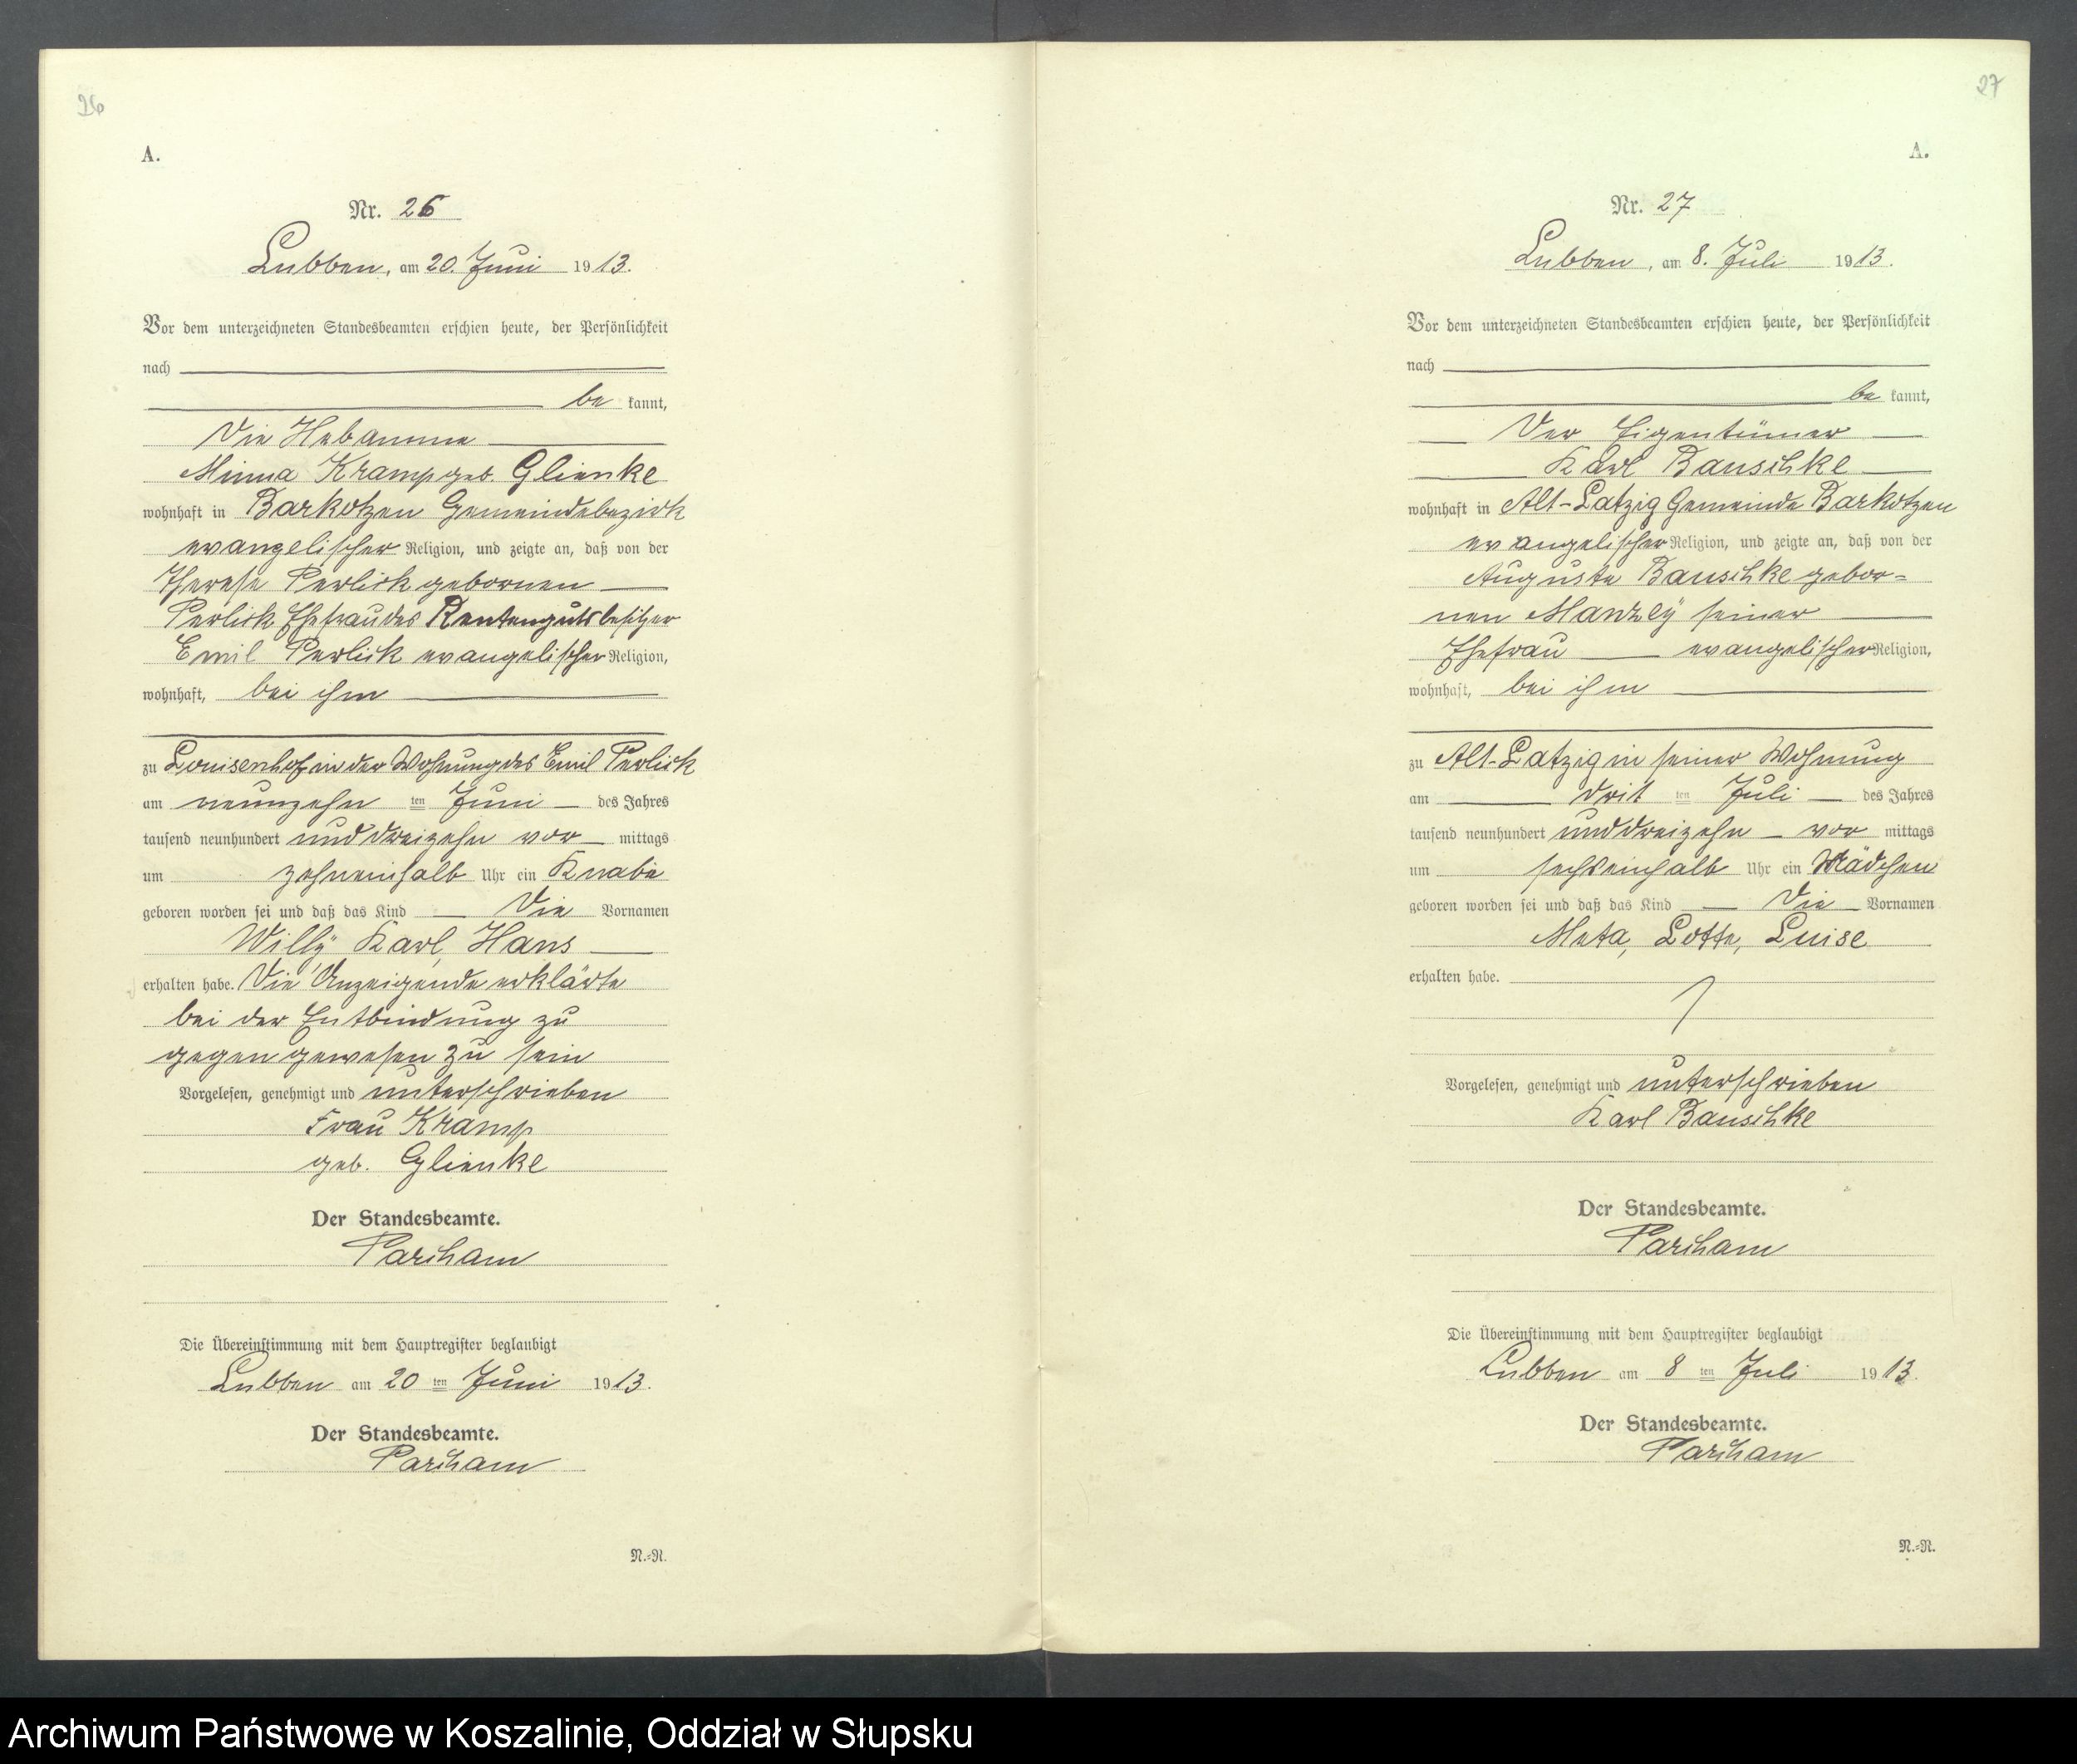 26
A.
Nr. 26
Lubben, am 20. Juni 1913.
Vor dem unterzeichneten Standesbeamten erschien heute, der Persönlichkeit
nach
be kannt,
die Hebamme
Minna Kramp geb. Glienke
wohnhaft in Barkotzen Gemeindebezirk
evangelischer Religion, und zeigte an, daß von der
Therese Perlick gebornen
Perlick Ehefrau des Rentengutsbesitzer
Emil Perlick evangelischer Religion,
wohnhaft, bei ihm
zu Louisenhof in der Wohnung des Emil Perlick
am neunzehn ten Juni des Jahres
tausend neunhundert und dreizehn vor mittags
um zehneinhalb Uhr ein Knabe
geboren worden sei und daß das Kind die Vornamen
Willÿ, Karl, Hans
erhalten habe. Die Anzeigende erklärte
bei der Entbindung zu
gegen gewesen zu sein
Vorgelesen, genehmigt und unterschrieben
Frau Kramp
geb. Glienke
Der Standesbeamte.
Parcham
Die Übereinstimmung mit dem Hauptregister beglaubigt
Lubben am 20 ten Juni 1913.
Der Standesbeamte.
Parcham
N.=N.
27
A.
Nr. 27
Lubben, am 8. Juli 1913.
Vor dem unterzeichneten Standesbeamten erschien heute, der Persönlichkeit
nach
be kannt,
Der Eigentümer
Karl Bauschke
wohnhaft in Alt-Latzig Gemeinde Barkotzen
evangelischer Religion, und zeigte an, daß von der
Auguste Bauschke gebor=
nen Manzeÿ seiner
Ehefrau evangelischer Religion,
wohnhaft, bei ihm
zu Alt-Latzig in seiner Wohnung
am drit ten Juli des Jahres
tausend neunhundert und dreizehn vor mittags
um sechseinhalb Uhr ein Mädchen
geboren worden sei und daß das Kind die Vornamen
Meta, Lotte, Luise
erhalten habe.
Vorgelesen, genehmigt und unterschrieben
Karl Bauschke
Der Standesbeamte.
Parcham
Die Übereinstimmung mit dem Hauptregister beglaubigt
Lubben am 8 ten Juli 1913.
Der Standesbeamte.
Parcham
N.=N.
Archiwum Państwowe w Koszalinie, Oddział w Słupsku